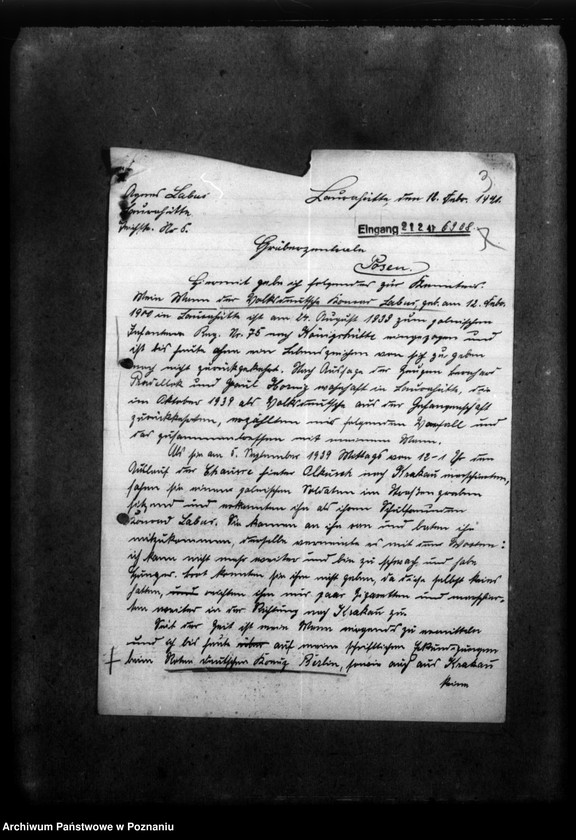 Agnes Labus
Laurahütte
Teichstr. No 5.
3
Laurahütte, den 18. Febr. 1941.
Eingang 21 2 41 6308.
Gräberzentrale
Posen.
Hiermit gebe ich folgendes zur Kenntnis.
Mein Mann der Volksdeutsche Konrad Labus, geb. am 12. Febr.
1900 in Laurahütte ist am 24. August 1939 zum polnischen
Infanterie Reg. No 75 nach Königshütte eingezogen und
ist bis heute ohne ein Lebenszeichen von sich zu geben
noch nicht zurückgekehrt. Nach Aussage der Zeugen
und Paul wohnhaft in Laurahütte, die
im Oktober 1939 als Volksdeutsche aus der Gefangenschaft
zurückkehrten, erzählten mir folgenden Vorfall und
das zusammentreffen mit meinem Mann.
Als sie am 5. September 1939 Mittags von 12-1 Uhr den
der Chaussee hinter Olkusch nach Krakau marschierten,
sahen sie einen polnischen Soldaten im Straßengraben
sitzend und erkannten ihn als ihren Schulfreund
Konrad Labus. Sie kamen an ihn ran und baten ihn
mitzukommen, derselbe verneinte es mit den Worten:
ich kann nicht mehr weiter und bin zu schwach und habe
Hunger. Brot konnten sie ihm nicht geben, da diese selbst keins
hatten, reichten ihm nur paar Zigaretten und marschier-
ten weiter in der Richtung nach Krakau zu.
Seit der Zeit ist mein Mann nirgends zu ermitteln
und ich bis heute auf meine schriftlichen Erkundigungen
beim Roten deutschen Kreuz Berlin, sowie auch aus Krakau
keine
Archiwum Państwowe w Poznaniu